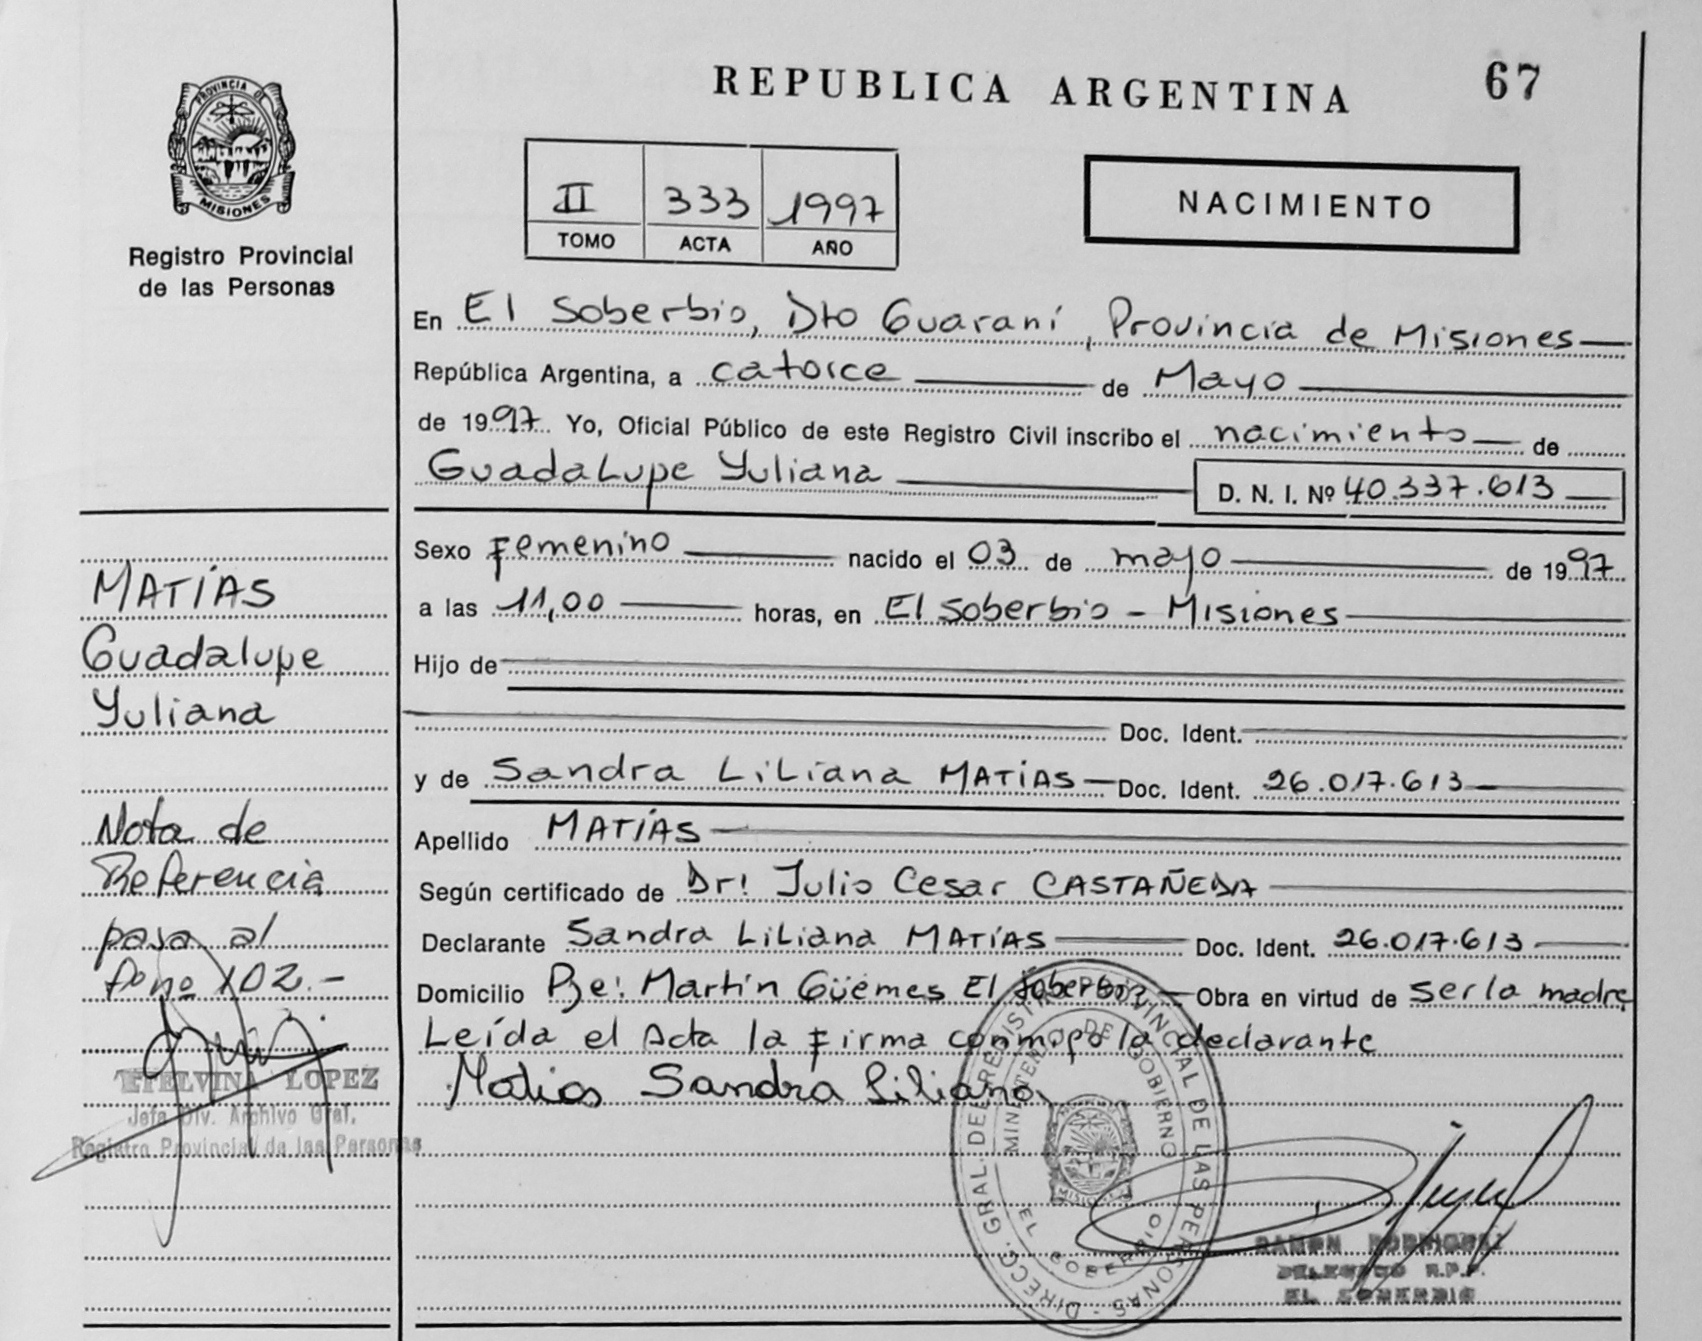 REPUBLICA ARGENTINA
67
PROVINCIA DE
MISIONES
Registro Provincial
de las Personas
II 333 1997
TOMO ACTA AÑO
NACIMIENTO
En El Soberbio, Dto Guaraní, Provincia de Misiones
República Argentina, a catorce de Mayo
de 1997 Yo, Oficial Público de este Registro Civil inscribo el nacimiento de
Guadalupe Yuliana D. N. I. Nº 40.337.613
Sexo Femenino nacido el 03 de mayo de 1997
a las 11,00 horas, en El Soberbio - Misiones
Hijo de
Doc. Ident.
y de Sandra Liliana MATÍAS Doc. Ident. 26.017.613
Apellido MATÍAS
Según certificado de Dr! Julio Cesar CASTAÑEDA
Declarante Sandra Liliana MATÍAS Doc. Ident. 26.017.613
Domicilio Bje: Martín Güemes El Soberbio Obra en virtud de ser la madre
Leída el Acta la Firma conmigo la declarante
Matias Sandra Liliana
MATÍAS
Guadalupe
Yuliana
Nota de
Referencia
pasa al
102.-
ETELVINA LOPEZ
Jefa Div. Archivo Gral.
Registro Provincial de las Personas
DIRECC. GRAL. DEL REGISTRO PROVINCIAL DE LAS PERSONAS
MINISTERIO DE GOBIERNO
MISIONES
EL SOBERBIO
RAMON RODRIGUEZ
DELEGADO R.P.P.
EL SOBERBIO